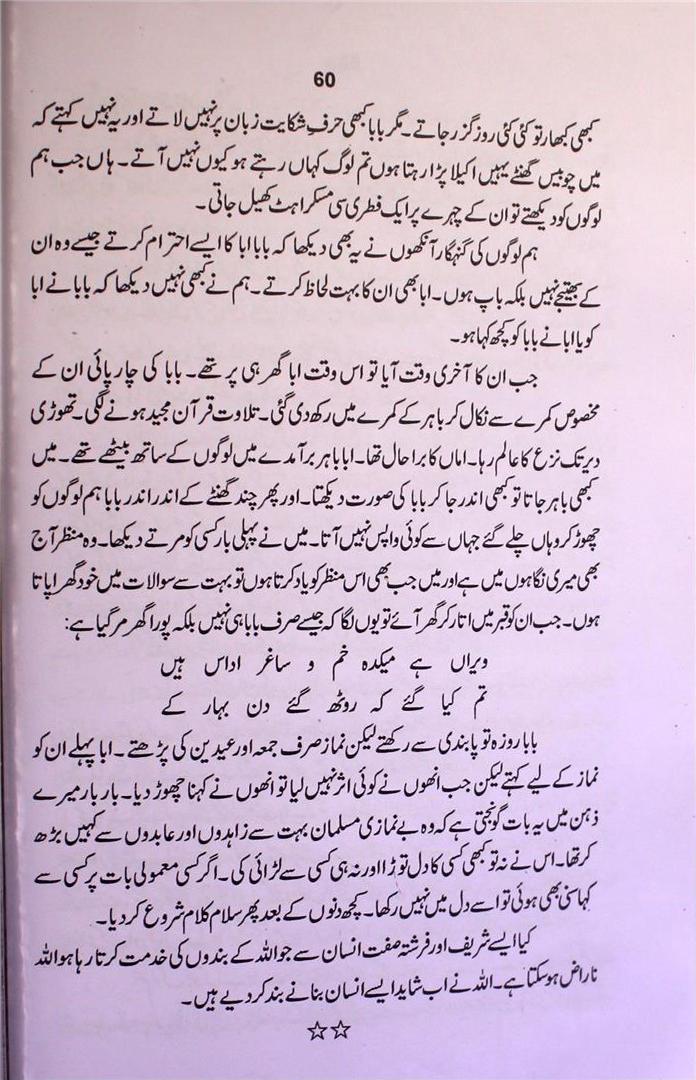 60
کبھی کبھار تو کئی کئی روز گزر جاتے۔ مگر بابا کبھی حرفِ شکایت زبان پر نہیں لاتے اور یہ نہیں کہتے کہ
میں چوبیس گھنٹے یہیں اکیلا پڑا رہتا ہوں تم لوگ کہاں رہتے ہو کیوں نہیں آتے۔ ہاں جب ہم
لوگوں کو دیکھتے تو ان کے چہرے پر ایک فطری سی مسکراہٹ کھیل جاتی۔
ہم لوگوں کی گنہگار آنکھوں نے یہ بھی دیکھا کہ بابا ابا کا ایسے احترام کرتے جیسے وہ ان
کے بھتیجے نہیں بلکہ باپ ہوں۔ ابا بھی ان کا بہت لحاظ کرتے۔ ہم نے کبھی نہیں دیکھا کہ بابا نے ابا
کو یا ابا نے بابا کو کچھ کہا ہو۔
جب ان کا آخری وقت آیا تو اس وقت ابا گھر ہی پر تھے۔ بابا کی چارپائی ان کے
مخصوص کمرے سے نکال کر باہر کے کمرے میں رکھ دی گئی۔ تلاوت قرآن مجید ہونے لگی۔ تھوڑی
دیر تک نزع کا عالم رہا۔ اماں کا برا حال تھا۔ ابا باہر برآمدے میں لوگوں کے ساتھ بیٹھے تھے۔ میں
کبھی باہر جاتا تو کبھی اندر جا کر بابا کی صورت دیکھتا۔ اور پھر چند گھنٹے کے اندر اندر بابا ہم لوگوں کو
چھوڑ کر وہاں چلے گئے جہاں سے کوئی واپس نہیں آتا۔ میں نے پہلی بار کسی کو مرتے دیکھا۔ وہ منظر آج
بھی میری نگاہوں میں ہے اور میں جب بھی اس منظر کو یاد کرتا ہوں تو بہت سے سوالات میں خود گھرا پاتا
ہوں۔ جب ان کو قبر میں اتار کر گھر آئے تو یوں لگا کہ جیسے صرف بابا ہی نہیں بلکہ پورا گھر مر گیا ہے:
ویراں ہے میکدہ خم و ساغر اداس ہیں
تم کیا گئے کہ روٹھ گئے دن بہار کے
بابا روزہ تو پابندی سے رکھتے لیکن نماز صرف جمعہ اور عیدین کی پڑھتے۔ ابا پہلے ان کو
نماز کے لیے کہتے لیکن جب انھوں نے کوئی اثر نہیں لیا تو انھوں نے کہنا چھوڑ دیا۔ بار بار میرے
ذہن میں یہ بات گونجتی ہے کہ وہ بے نمازی مسلمان بہت سے زاہدوں اور عابدوں سے کہیں بڑھ
کر تھا۔ اس نے نہ تو کبھی کسی کا دل توڑا اور نہ ہی کسی سے لڑائی کی۔ اگر کسی معمولی بات پر کسی سے
کہا سنی بھی ہوئی تو اسے دل میں نہیں رکھا۔ کچھ دنوں کے بعد پھر سلام کلام شروع کر دیا۔
کیا ایسے شریف اور فرشتہ صفت انسان سے جو اللہ کے بندوں کی خدمت کرتا رہا ہو اللہ
ناراض ہو سکتا ہے۔ اللہ نے اب شاید ایسے انسان بنانے بند کر دیے ہیں۔
☆☆